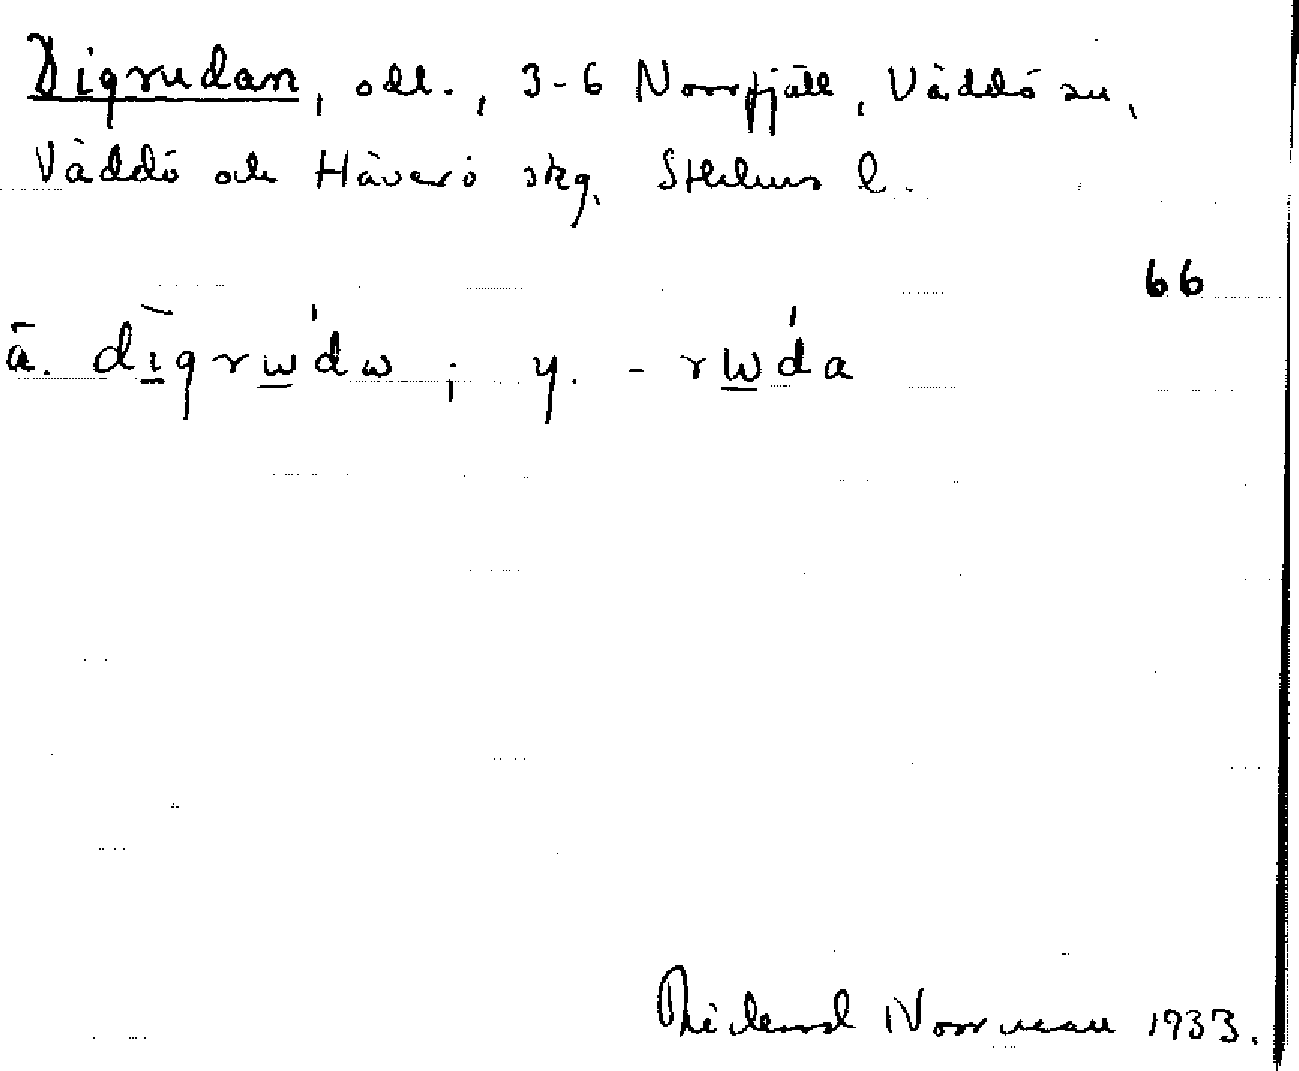 Digrudan, odl., 3-6 Norrfjäll, Väddö sn,
Väddö och Häverö skg. Sthlms l.
66
ä. dìgrw'dw ; y. - rw'da
Rickard Norrman 1933.